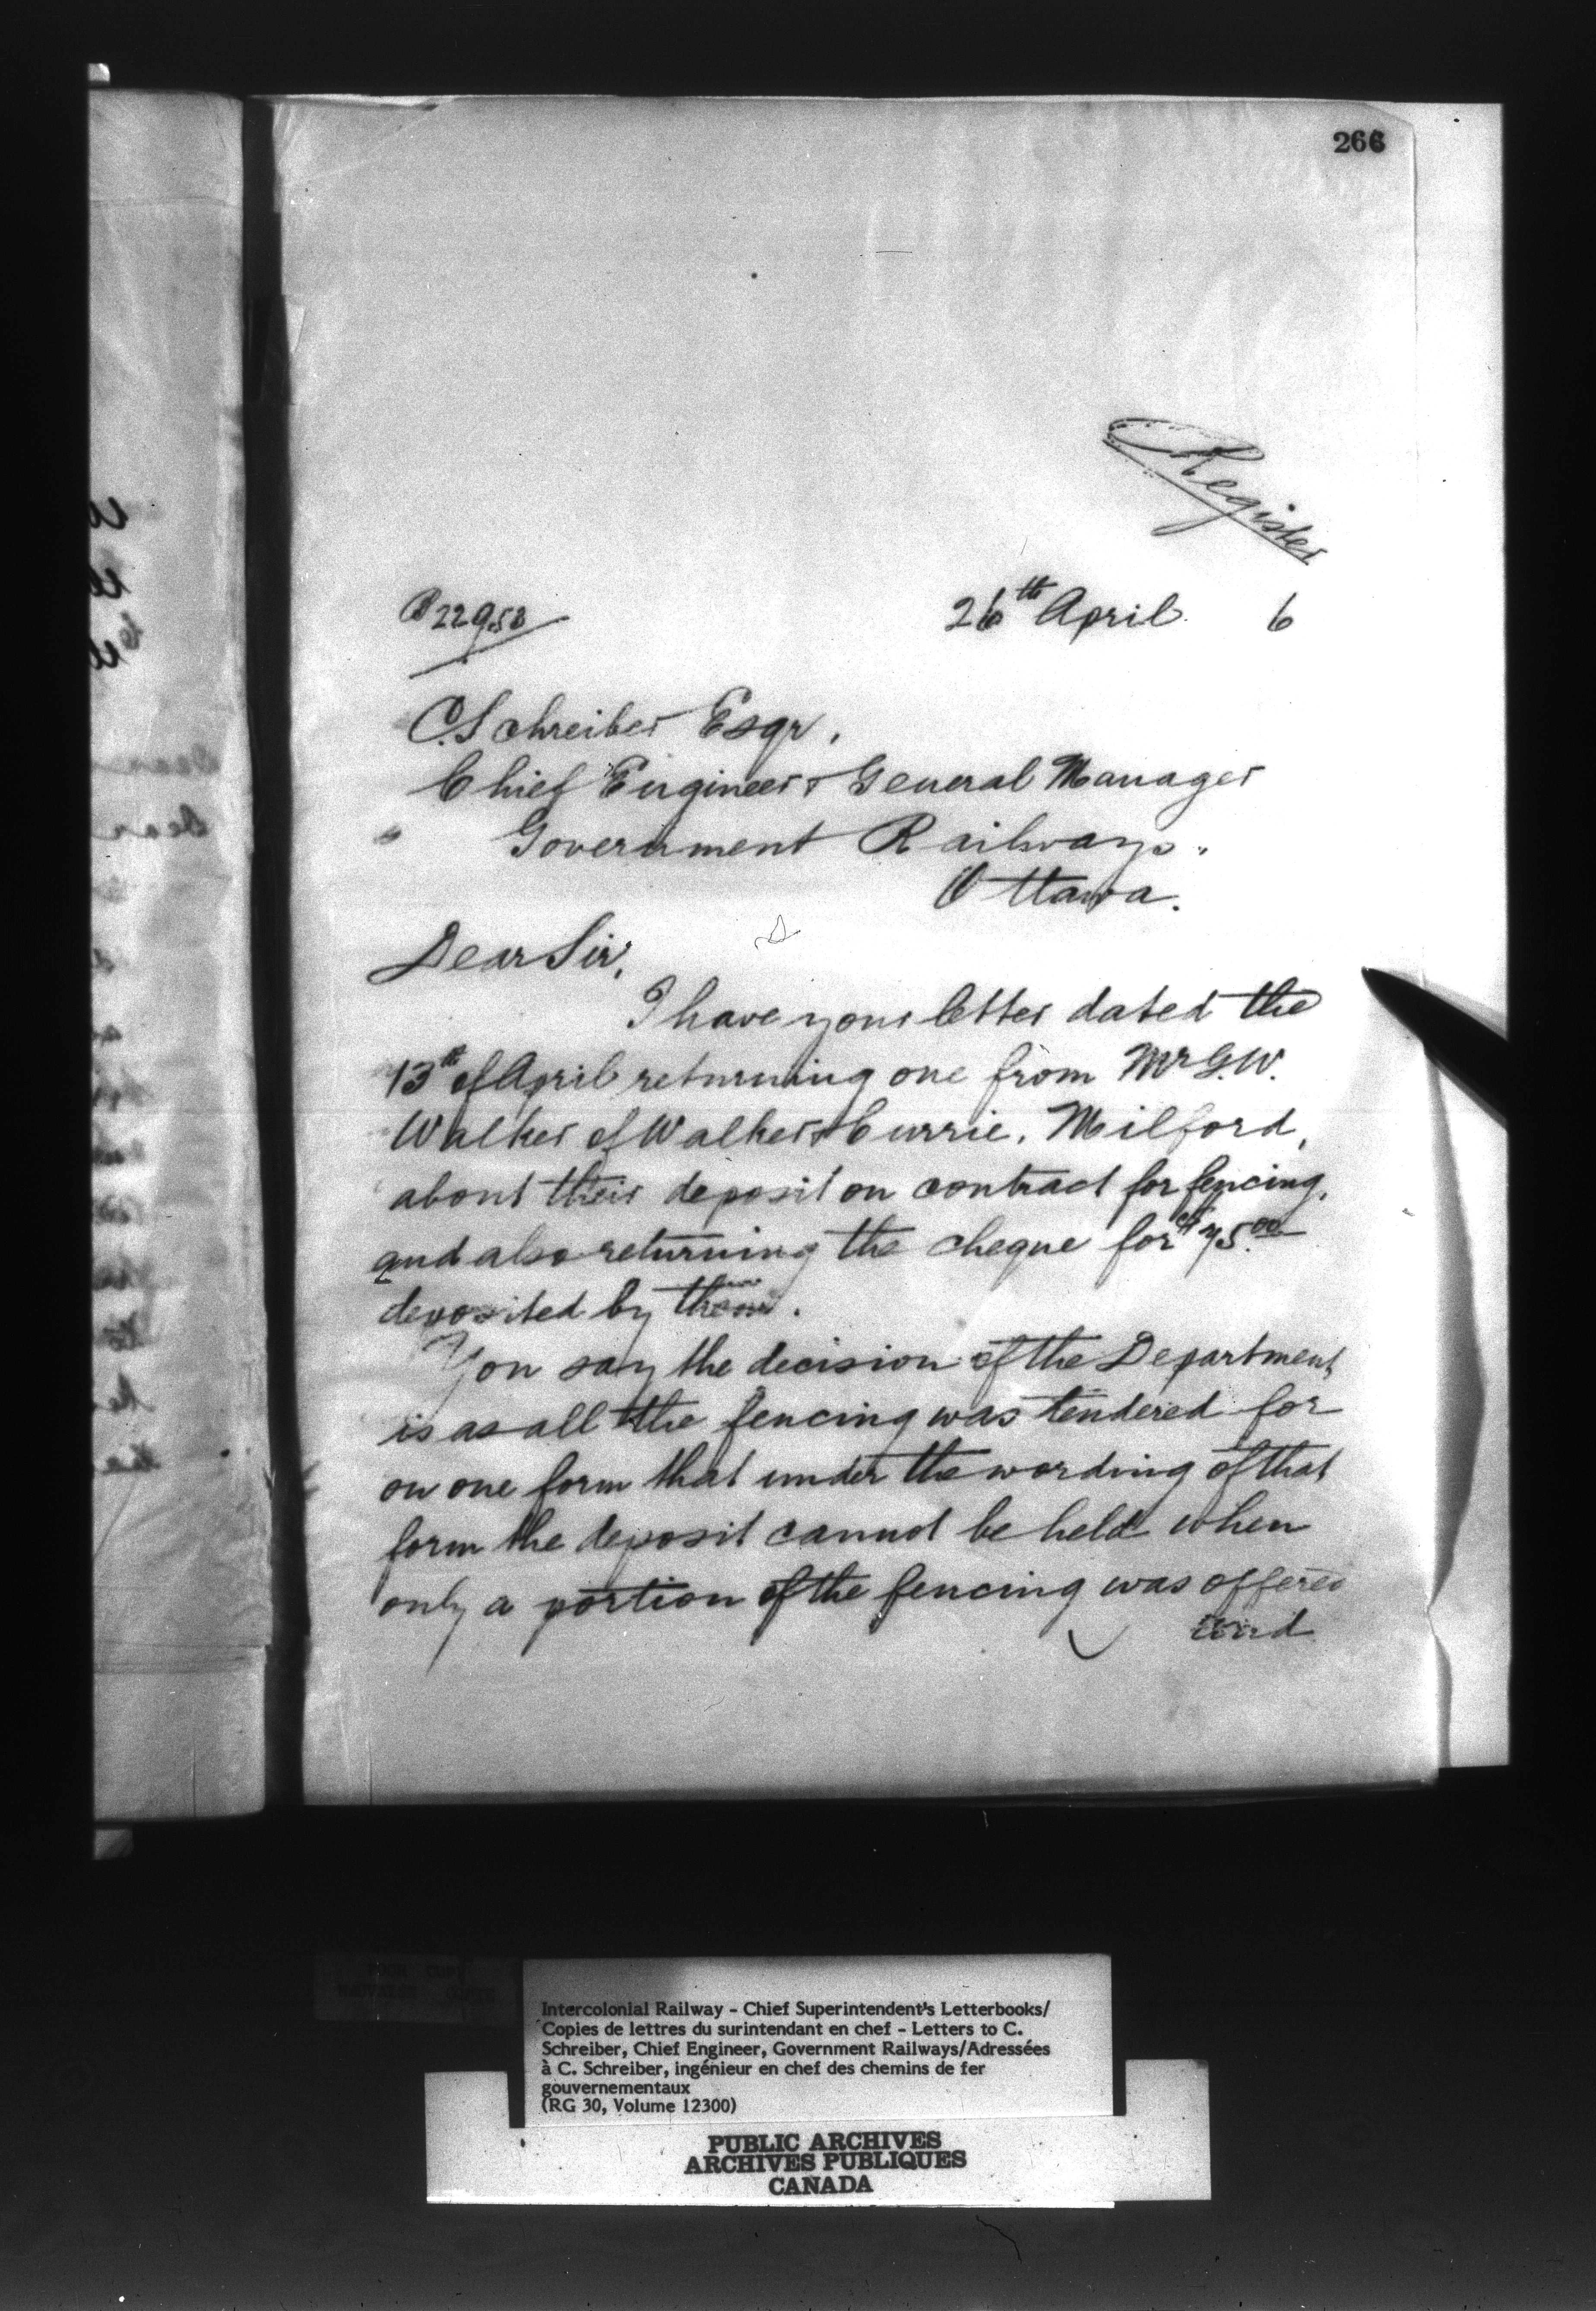 266
Register
22958
26th April 6
C. Schreiber Esqr.
Chief Engineer & General Manager
Government Railways.
Ottawa.
Dear Sir,
I have your letter dated the
13th of April returning one from Mr G.W.
Walker of Walker & Currie, Milford,
about their deposit on contract for fencing,
and also returning the cheque for $75.00
deposited by them.
You say the decision of the Department
is as all the fencing was tendered for
on one form that under the wording of that
form the deposit cannot be held when
only a portion of the fencing was offered
and
Intercolonial Railway - Chief Superintendent's Letterbooks/
Copies de lettres du surintendant en chef - Letters to C.
Schreiber, Chief Engineer, Government Railways/Adressées
à C. Schreiber, ingénieur en chef des chemins de fer
gouvernementaux
(RG 30, Volume 12300)
PUBLIC ARCHIVES
ARCHIVES PUBLIQUES
CANADA